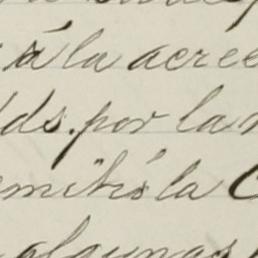 á la acree
ds. por la
emitís la C
algunas